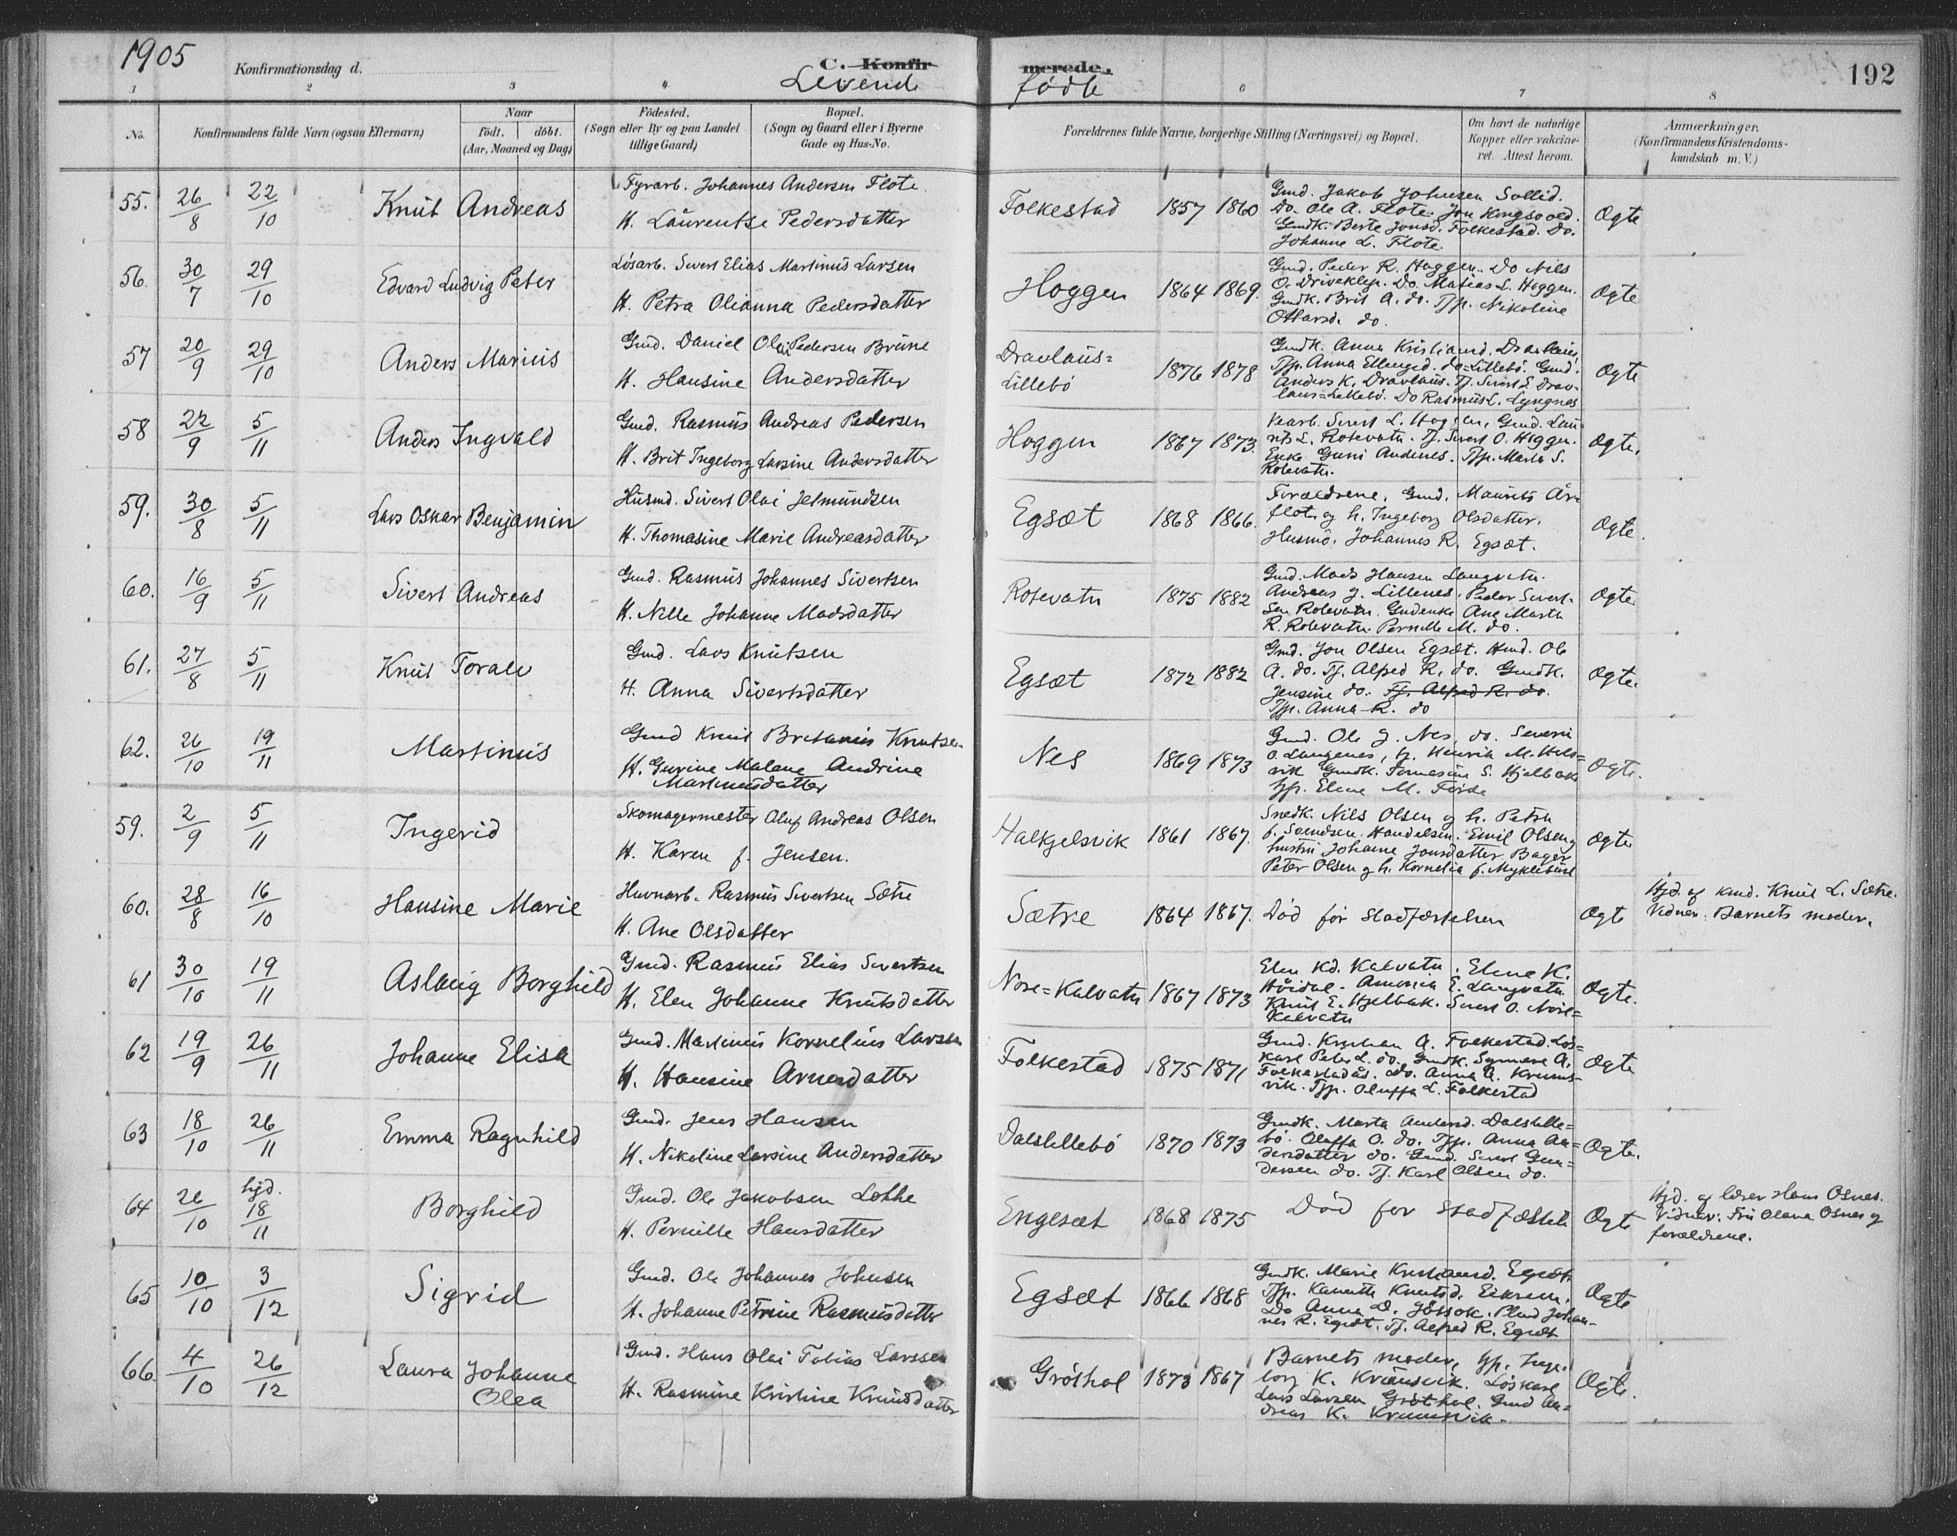 1905
Konfirmationsdag d.
C. Konfir
merede.
Levende
fødte
192
1 2 3 4 6 7 8
No.
Konfirmandens fulde Navn (ogsaa Efternavn)
Naar
født. døbt.
(Aar, Maaned og Dag)
Fødested.
(Sogn eller By og paa Landet
tillige Gaard)
Bopæl.
(Sogn og Gaard eller i Byerne
Gade og Hus-No.
Forældrenes fulde Navne, borgerlige Stilling (Næringsvei) og Bopæl.
Om havt de naturlige
Kopper eller vakcine-
ret. Attest herom.
Anmærkninger.
(Konfirmandens Kristendoms-
kundskab m. V.)
55. 26/8 22/10 Knut Andreas
Fyrarb. Johannes Andersen Flote.
H. Laurentse Pedersdatter
Folkestad 1857 1860
Gmd. Jakob Johnsen Sollid.
Do. Ole A. Flote. Jon Kongsvold.
Gmdk. Berte Jonsd. Folkestad. Do.
Johanne L. Flote.
Ogte
56. 30/7 29/10 Edvard Ludvig Peter
Løsarb. Sivert Elias Martinus Larsen
H. Petra Olianna Pedersdatter
Hoggen 1864 1869.
Gmd. Peder R. Hoggen. Do Nils
O. Driveklep. Do. Matias L. Hoggen.
Gmdk. Brit A. do. Tjp. Nikoline
Ottarsd. do.
Ogte
57 20/9 29/10 Anders Marius
Gmd. Daniel Olai Pedersen Brune
H. Hansine Andersdatter
Dravlaus=
Lillebø 1876 1878
Gmdk. Anna Kristiansd. Dravlaus,
Tjp. Anna Ellingsd. do=Lillebø. Gmd.
Anders K. Dravlaus. Tj. Sivert S. Drav-
laus=Lillebø. Do Rasmus L. Lyngnes
Ogte
58 22/9 5/11 Anders Ingvald
Gmd. Rasmus Andreas Pedersen
H. Brit Ingeborg Larsine Andersdatter
Hoggen 1867 1873.
Sivert L. Hoggen, Gmd. Lau-
rits L. Rotevatn. Tj. Sivert O. Hoggen.
Enke Guni Andersd. Tjp. Marta S.
Rotevatn.
Ogte.
59. 30/8 5/11 Lars Oskar Benjamin
Husmd. Sivert Olai Jetmundsen
H. Thomasine Marie Andreasdatter
Egsæt 1868 1866.
Forældrene, Gmd. Maurits Aar=
flot og h. Ingeborg Olsdatter.
Husmd. Johannes R. Egsæt.
Ogte.
60. 16/9 5/11 Sivert Andreas
Gmd. Rasmus Johannes Sivertsen
H. Nille Johanne Madsdatter
Rotevatn 1875 1882
Gmd. Mads Hansen Langvatn.
Andreas J. Lillenes, Peder Sivert-
sen Rotevatn. Gmdenke Ane Marta
R. Rotevatn. Pernille M. do.
Ogte.
61. 27/8 5/11 Knut Toralv
Gmd. Lars Knutsen
H. Anna Sivertsdatter
Egsæt 1872 1882
Gmd. Jon Olsen Egsæt. Hmd. Ole
A. do. Tj. Alfred R. do. Gmdk.
Jensine do. Tj. Alfred R. do.
Tjp. Anna R. do
Ogte.
62. 26/10 19/11 Martinus
Gmd Knut Bretanus Knutsen
H. Gurine Malene Andrine
Martinusdatter
Nes 1869 1873
Gmd. Ole J. Nes, do. Severin
O. Langenes,
vik Gmdk. S. Hjelbakk
Tjp. Elene M.Førde
Ogte.
59. 2/9 5/11 Ingerid
Skomagermester Oluf Andreas Olsen
H. Karen f. Jensen.
Halkjelsvik 1861 1867.
Snedk. Nils Olsen og h. Petra
f. Svendsen. Handelsm. Emil Olsen og
hustru Johanne Jonsdatter. Bager
Peter Olsen og h. Kornelia f. Myklebust
Ogte
60. 28/8 16/10 Hansine Marie
Havnarb. Rasmus Sivertsen Sætre
H. Ane Olsdatter
Sætre 1864 1867.
Død før stadfæstelsen
Ogte
Hjd. af kand. Knut L. Sætre.
Vidner: Barnets moder.
61 30/10 19/11 Aslaug Borghild
Gmd. Rasmus Elias Sivertsen
H. Elen Johanne Knutsdatter
Nore=Kalvatn 1867 1873
Elen Kd. Kalvatn, Elene K.
Høidal. E. Langvatn.
Knut E. Hjelbak. Sivert O. Nore=
Kalvatn
Ogte.
62 19/9 26/11 Johanne Elisa
Gmd. Martinus Kornelius Larsen
H. Hansine Arnesdatter
Folkestad 1875 1871
Gmd. Kristian A. Folkestad. Løs=
karl Peter L. do. Gmdk. Synnøve A.
Folkestadås. do. Anna A. Krums-
vik. Tjp. Oluffa L. Folkestad
Ogte
63 18/10 26/11 Emma Ragnhild
Gmd. Jens Hansen
H. Nikoline Larsine Andersdatter
Dalslillebø 1870 1873
Gmdk. Marta Andersd. Dalslille=
bø. Oluffa O. do. Tjp. Anna An=
dersdatter do. Gmd. Sivert Gun=
dersen do. Tj. Karl Olsen do.
Ogte.
64 20/10 hjd. 18/11 Borghild
Gmd. Ole Jakobsen Løkke
H. Pernille Hansdatter
Engeset 1868 1875
Død før Stadfæstels
Ogte
Hjd. af lærer Hans Osnes.
Vidner: Fru Olava Osnes og
forældrene.
65 10/10 3/12 Sigrid
Gmd. Ole Johannes Johnsen
H. Johanne Petrine Rasmusdatter
Egsæt 1866 1868
Gmdk. Marie Kristiansd. Egsæt.
Tjp. Knutsd. Eikrem.
Do Anna D. Jøssok. Johan-
nes R. Egsæt. Tj. Alfred R. Egsæt
Ogte
66. 4/10 26/12 Laura Johanne
Olea
Gmd. Hans Olai Tobias Larssen
H. Rasmine Kristine Knutsdatter
Grøthol 1873 1867
Barnets moder, Tjp. Inge-
borg K. Krumsvik. Løskarl
Lars Larsen Grøthol. Gmd An=
dreas K. Krumsvik.
Ogte.